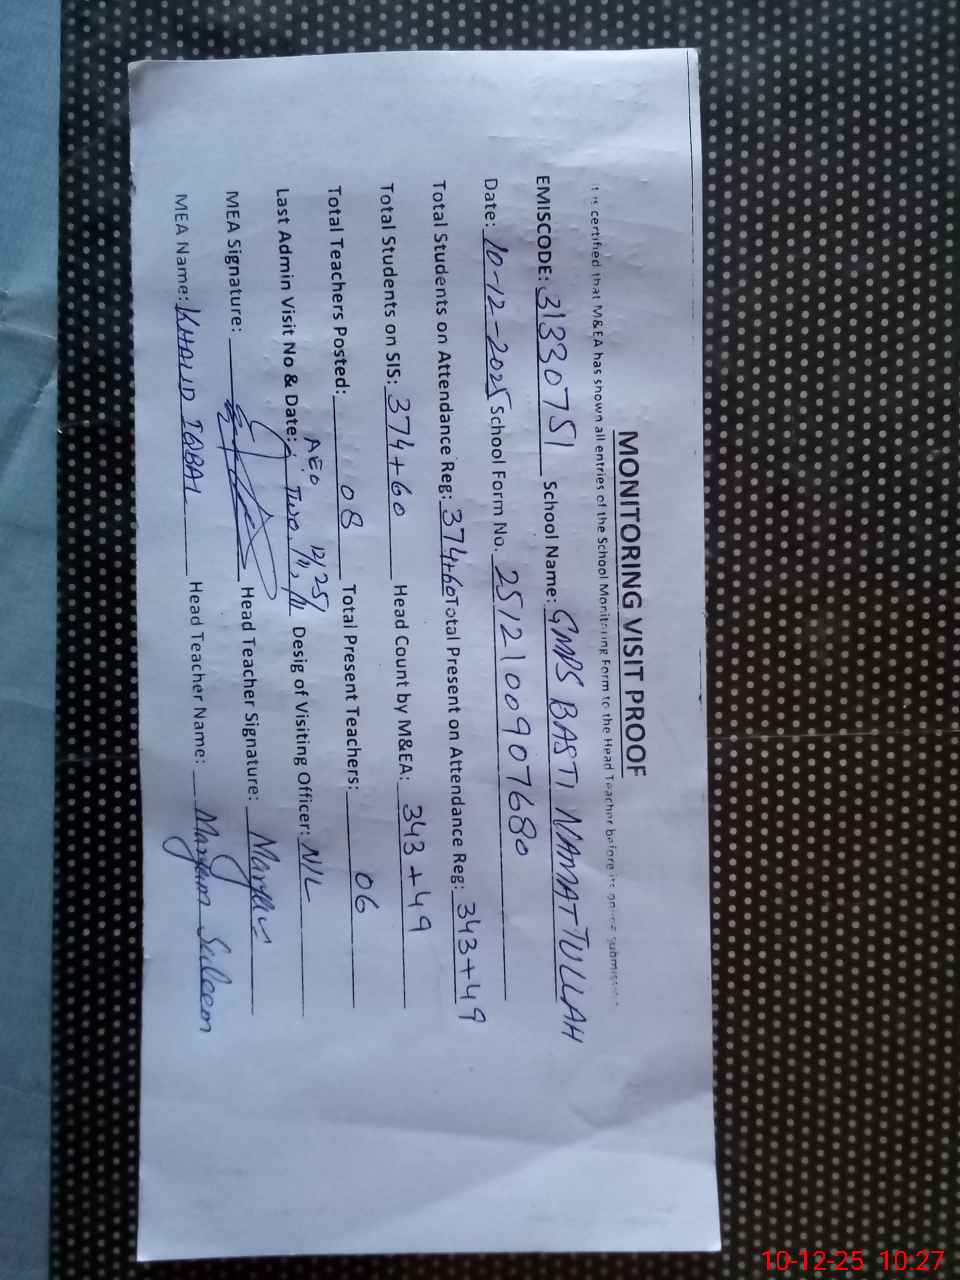 MONITORING VISIT PROOF
It is certified that M&EA has shown all entries of the School Monitoring Form to the Head Teacher before its online submission
EMISCODE: 31330751 School Name: GMPS BASTI NAMATTULLAH
Date: 10-12-2025 School Form No. 2512100907680
Total Students on Attendance Reg: 374+60 Total Present on Attendance Reg: 343+49
Total Students on SIS: 374+60 Head Count by M&EA: 343+49
Total Teachers Posted: 08 Total Present Teachers: 06
AEO
Last Admin Visit No & Date: Two, Desig of Visiting Officer: NIL
MEA Signature: Head Teacher Signature: Maryam
MEA Name: KHALID IQBAL Head Teacher Name: Maryam Saleem
10-12-25 10:27